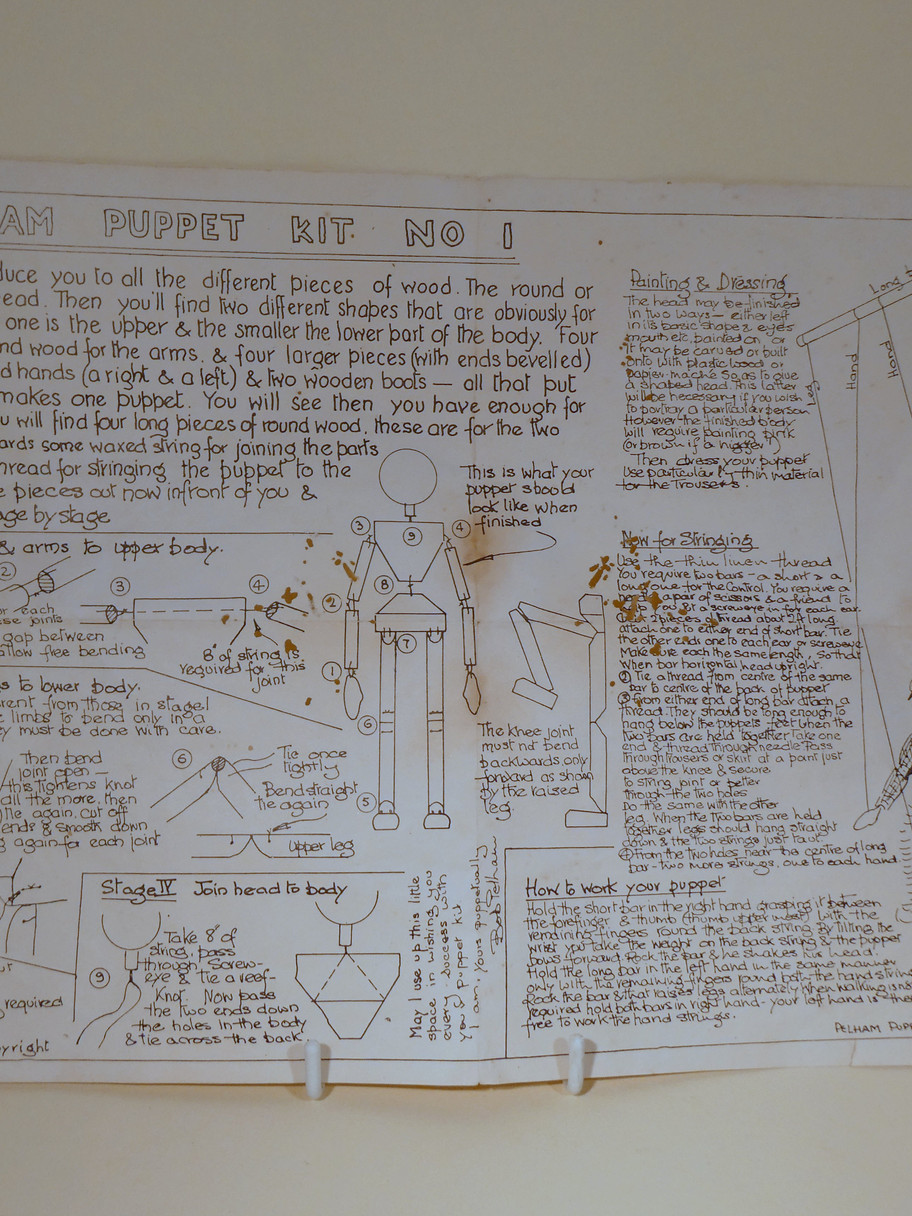 AM PUPPET KIT NO 1
duce you to all the different pieces of wood. The round or
ead. Then you'll find two different shapes that are obviously for
one is the upper & the smaller the lower part of the body. Four
nd wood for the arms, & four larger pieces (with ends bevelled)
d hands (a right & a left) & two wooden boots — all that put
makes one puppet. You will see then you have enough for
u will find four long pieces of round wood, these are for the two
ards some waxed string for joining the parts
hread for stringing the puppet to the
e pieces out now infront of you &
age by stage
This is what your
puppet should
look like when
finished
& arms to upper body.
2
3
4
or each
se joints
gap between
allow free bending
8" of string is
required for this
joint
s to lower body.
rent from those in stage I
e limbs to bend only in a
ey must be done with care.
Then bend
joint open —
this tightens knot
all the more, then
tie again, cut off
ends & smooth down
g again for each joint
6
Tie once
tightly
Bend straight
tie again
upper leg
3
4
9
8
2
7
1
6
5
The knee joint
must not bend
backwards, only
forward as shown
by the raised
leg.
required
pyright
Stage IV Join head to body
9
Take 8" of
string, pass
through Screw-
eye & tie a reef-
Knot. Now pass
the two ends down
the holes in the body
& tie across the back.
May I use up this little
space in wishing you
every success with
your puppet kit
I am, Yours puppetually
Bob Pelham
Painting & Dressing
The head may be finished
in two ways — either left
in its basic shape & eyes
mouth etc. painted on or
it may be carved or built
onto with plastic wood or
papier-maché so as to give
a shaped head. This latter
will be necessary if you wish
to portray a particular person
However the finished body
will require painting pink
(or brown if a nigger!)
Then dress your puppet
Use particularly thin material
for the Trousers.
Now for Stringing
Use the thin linen thread
You require two bars - a short & a
long one for the control. You require a
needle, a pair of scissors & a friend to
help you. Put a screweye in for each ear.
Cut 2 pieces of thread about 24" long
attach one to either end of short bar. Tie
the other ends one to each ear or screweye
Make sure each the same length, so that
when bar horizontal head upright.
2 Tie a thread from centre of the same
bar to centre of the back of puppet
3 From either end of long bar attach a
thread. They should be long enough to
hang below the puppets feet when the
two bars are held together Take one
end & thread through needle Pass
through trousers or skirt at a point just
above the knee & secure
to string joint or better
through the two holes
Do the same with the other
leg. When the two bars are held
together legs should hang straight
down & the two strings just taut.
4 From the two holes near the centre of long
bar - two more strings, one to each hand
Long
Leg
Hand
Hand
How to work your puppet
Hold the short bar in the right hand grasping it between
the forefinger & thumb (thumb uppermost) with the
remaining fingers round the back string. By tilting the
wrist you take the weight on the back string & the puppet
bows forward. Rock the bar & he shakes his head.
Hold the long bar in the left hand in the same manner
only with the remaining fingers round both the hand strings
Rock the bar & that raises legs alternately When walking isn't
required hold both bars in right hand - your left hand is then
free to work the hand strings.
PELHAM PUPP